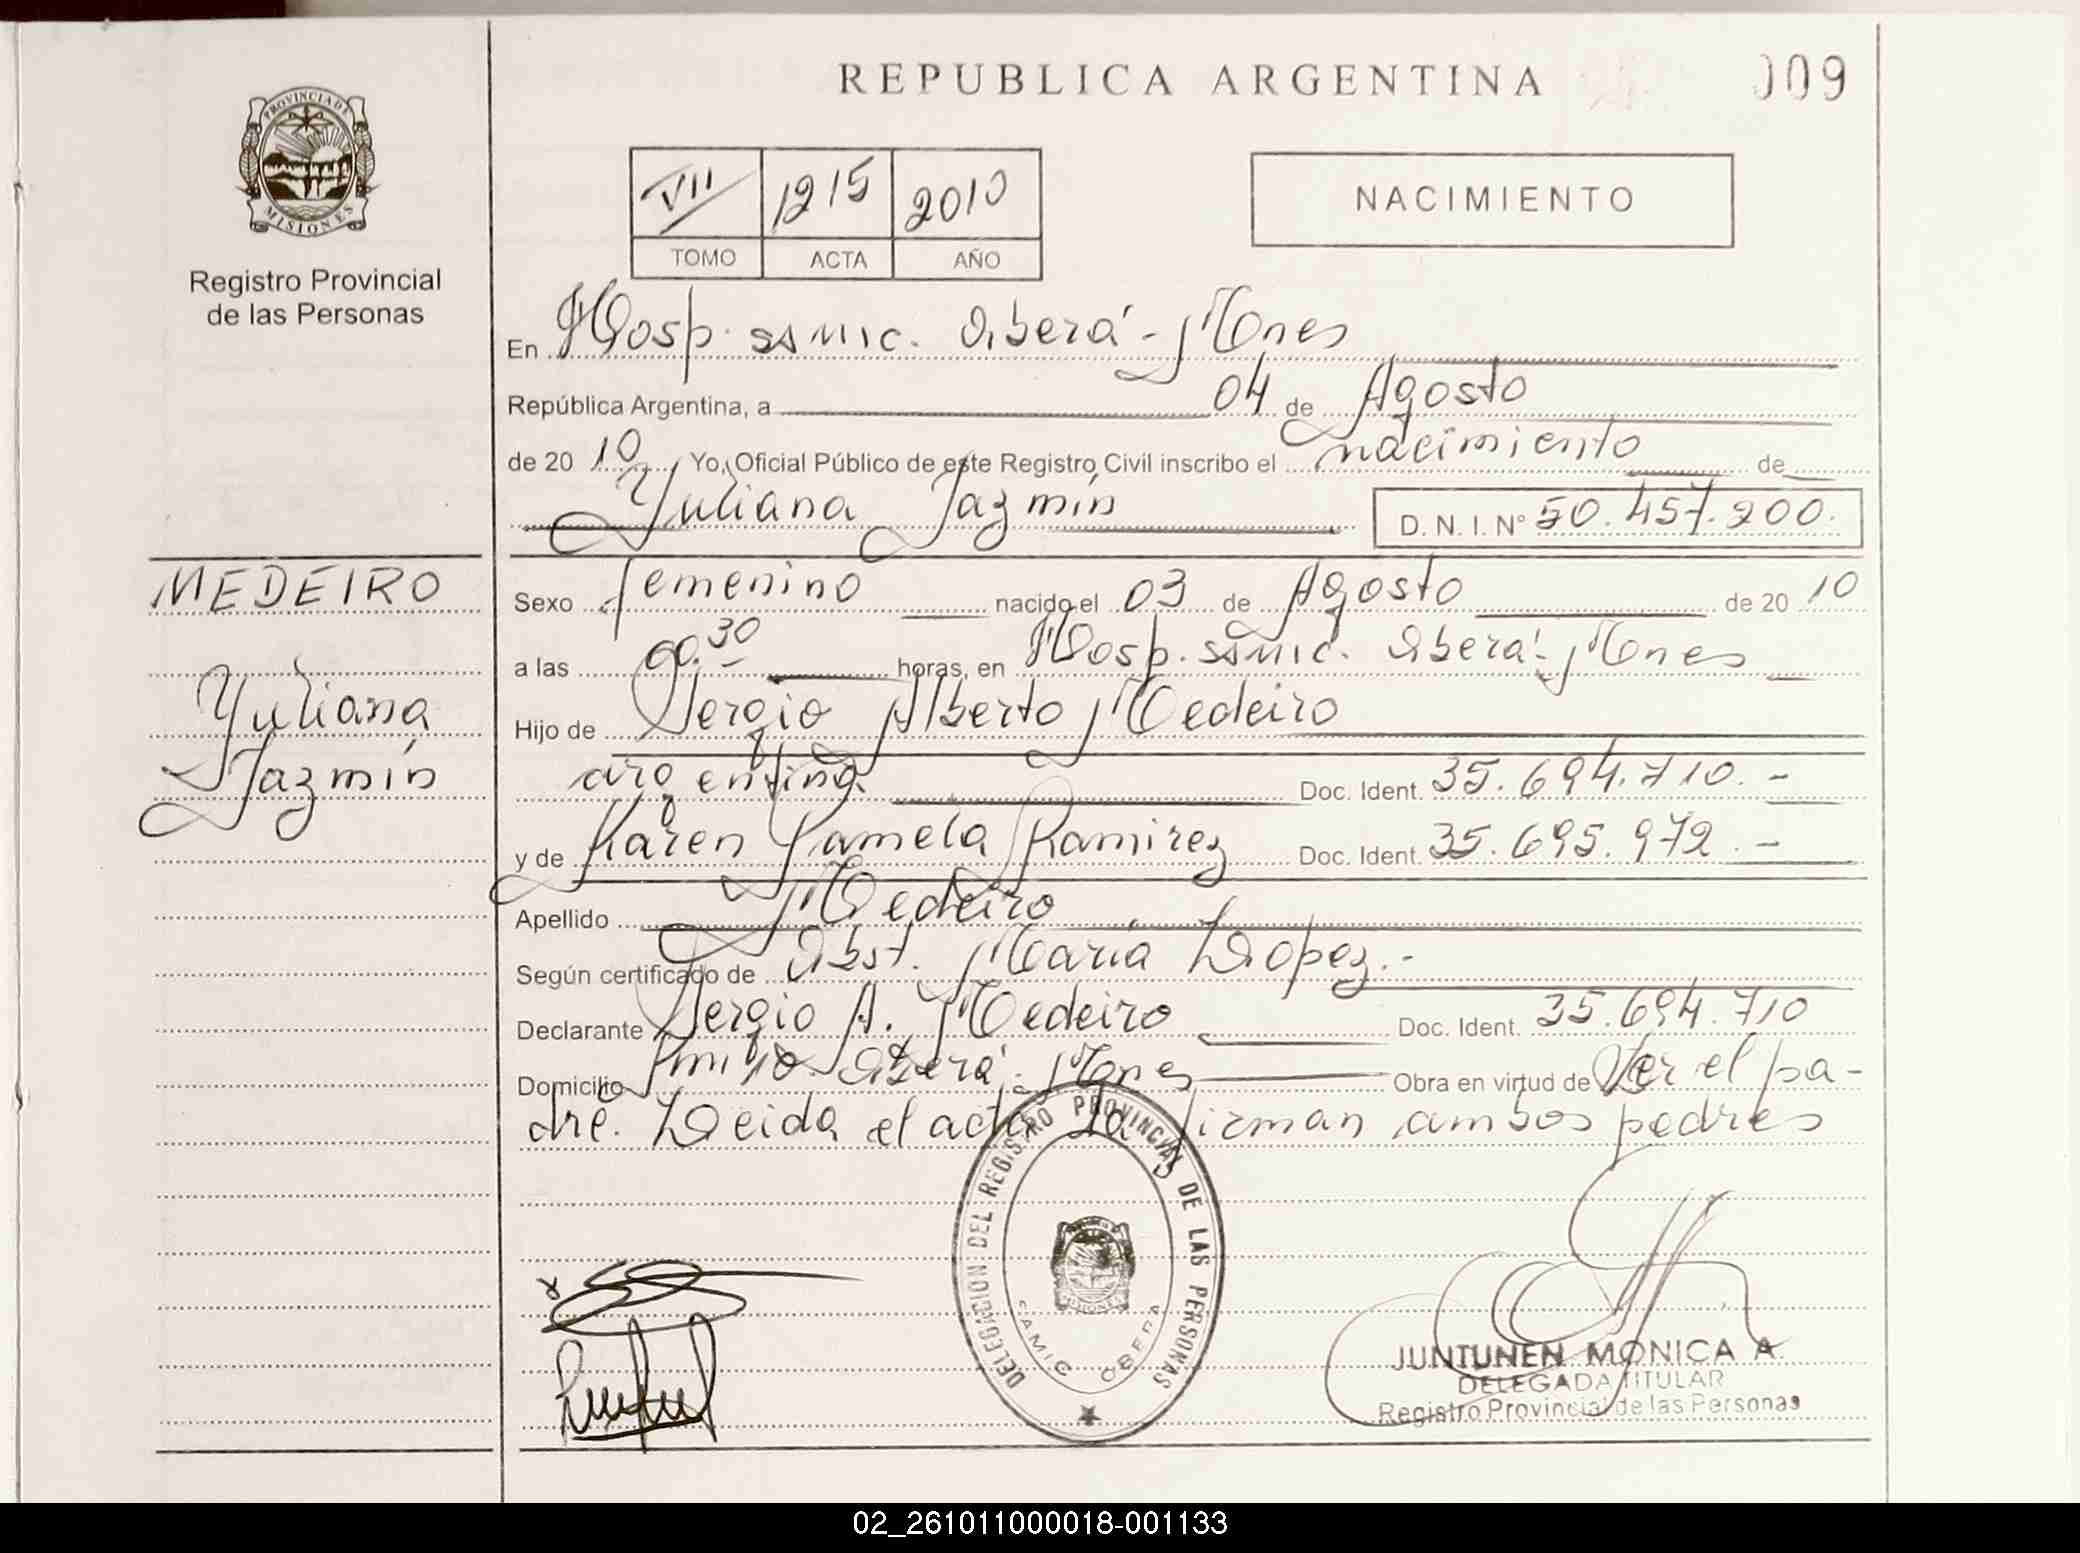 REPUBLICA ARGENTINA
009
PROVINCIA DE MISIONES
Registro Provincial
de las Personas
VII 1215 2010
TOMO ACTA AÑO
NACIMIENTO
En Hosp. SAMIC. Oberá - Mnes
República Argentina, a 04 de Agosto
de 2010 Yo, Oficial Público de este Registro Civil inscribo el nacimiento de
Yuliana Jazmín D. N. I. Nº 50.457.200.
MEDEIRO
Yuliana
Jazmín
Sexo femenino nacido el 03 de Agosto de 2010
a las 00.30 horas, en Hosp. SAMIC. Oberá - Mnes
Hijo de Sergio Alberto Medeiro
argentina. Doc. Ident. 35.694.710.-
y de Karen Pamela Ramirez Doc. Ident. 35.695.972.-
Apellido Medeiro
Según certificado de Obst. María Lopez.-
Declarante Sergio A. Medeiro Doc. Ident. 35.694.710
Domicilio Oberá - Mnes Obra en virtud de Ser el pa-
dre. Leida el acta la firman ambos padres
DELEGACION DEL REGISTRO PROVINCIAL DE LAS PERSONAS
MISIONES
SAMIC OBERA
JUNTUNEN MONICA A
DELEGADA TITULAR
Registro Provincial de las Personas
02_261011000018-001133